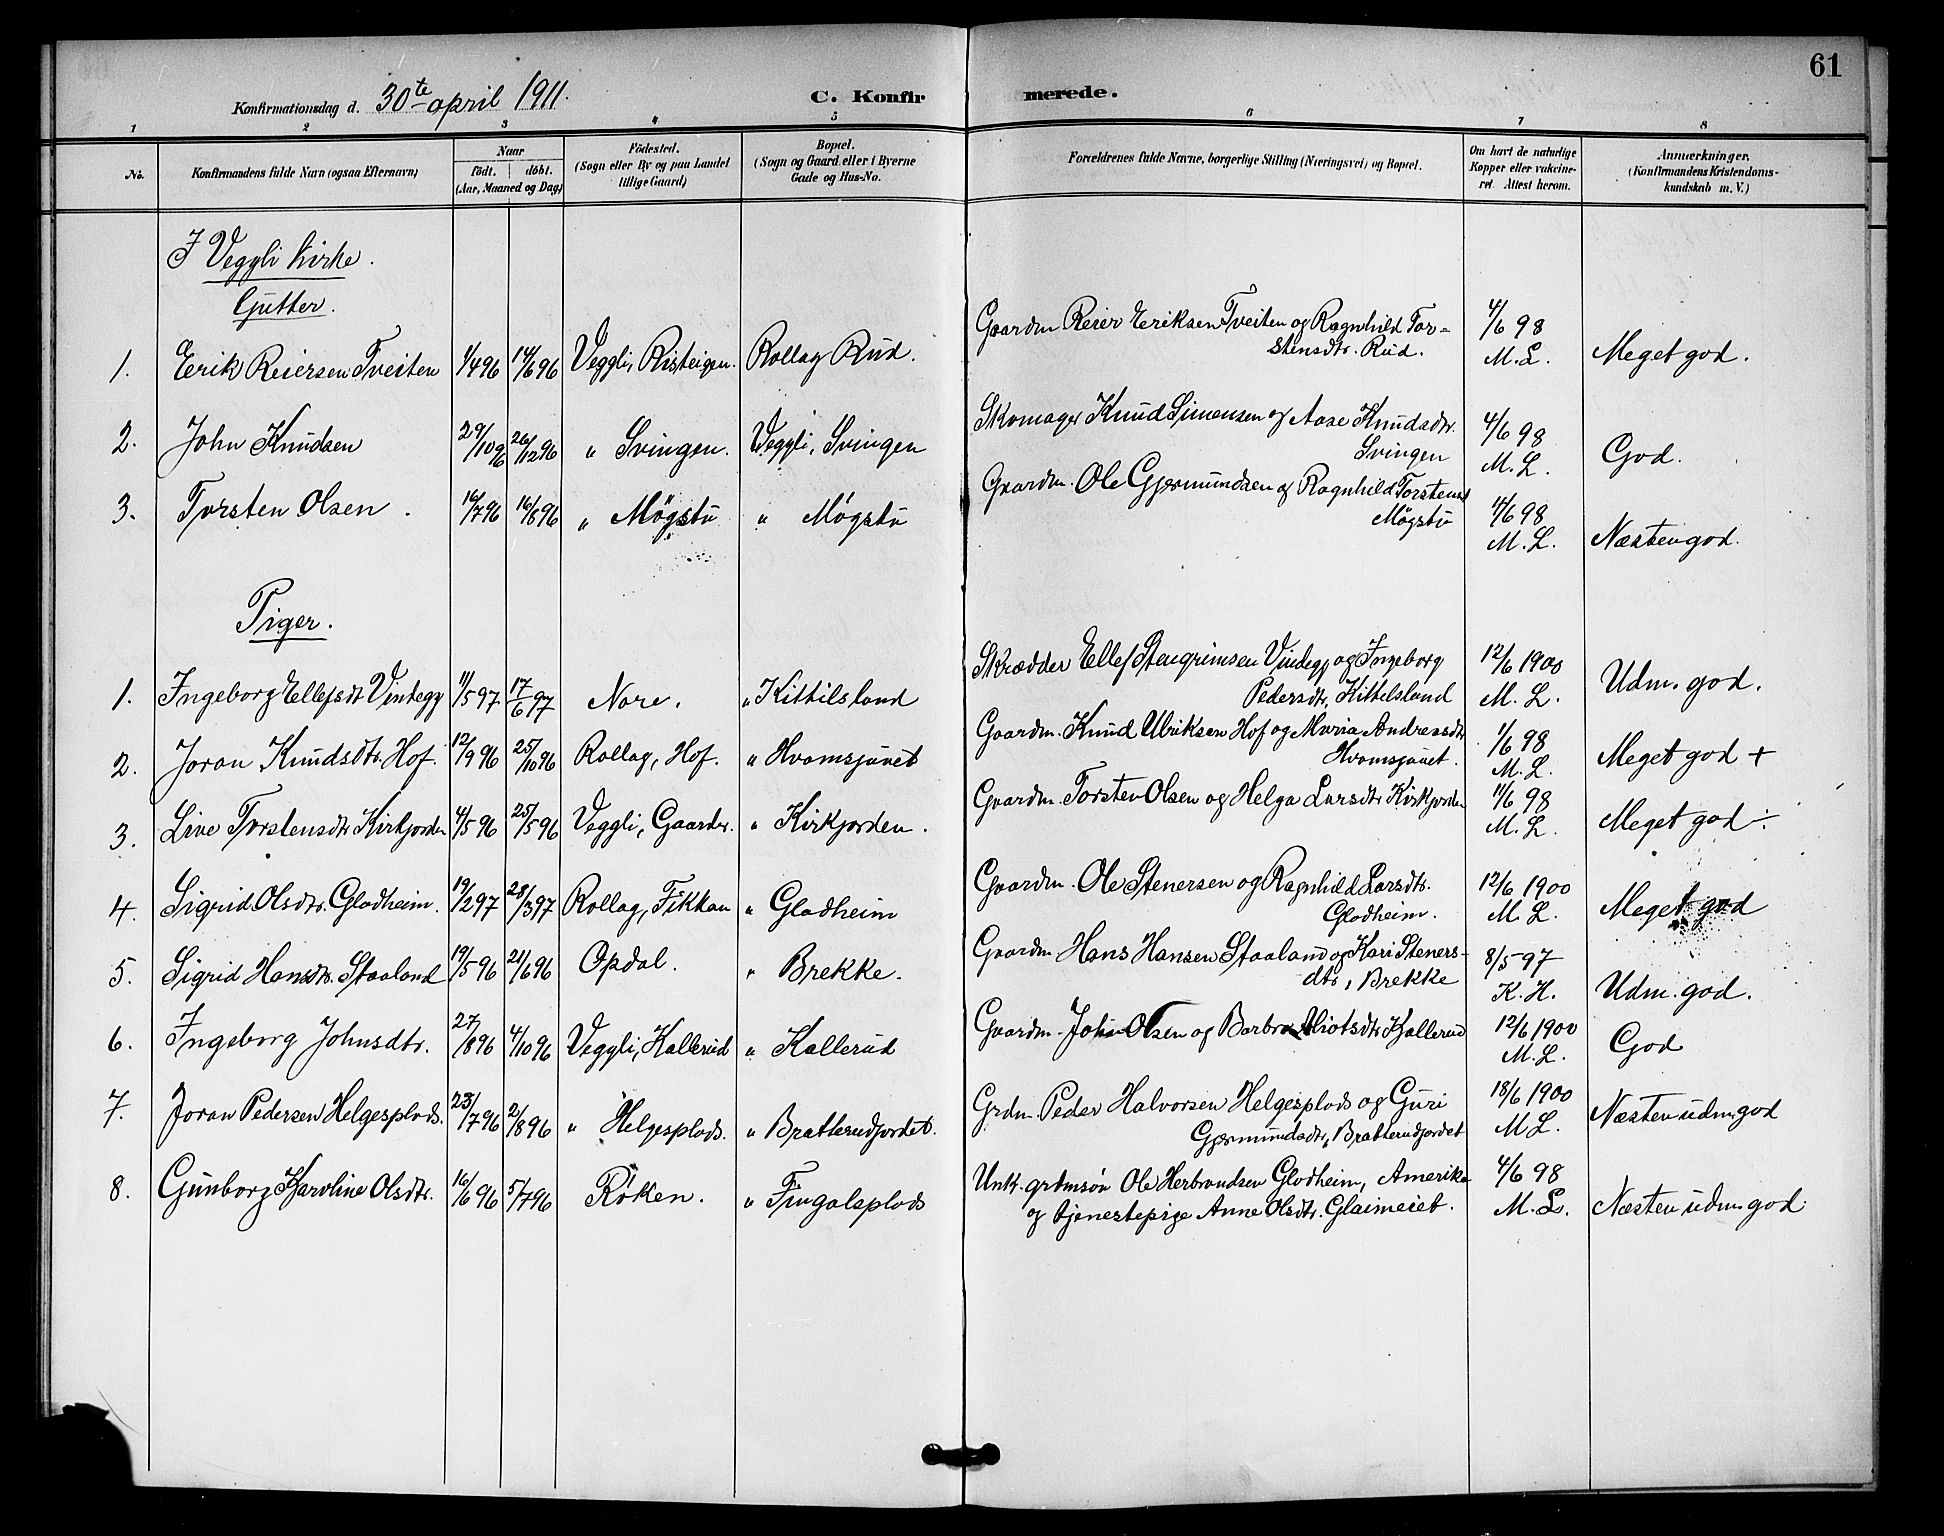 61
Konfirmationsdag d. 30te april 1911.
C. Konfirmerede.
1 2 3 4 5 6 7 8
No.
Konfirmandens fulde Navn (ogsaa Efternavn)
Naar
födt. döbt.
(Aar, Maaned og Dag)
Födested.
(Sogn eller By og paa Landet
tillige Gaard)
Bopæl.
(Sogn og Gaard eller i Byerne
Gade og Hus-No.
Forældrenes fulde Navne, borgerlige Stilling (Næringsvei) og Bopæl.
Om havt de naturlige
Kopper eller vakcine-
ret. Attest herom.
Anmærkninger.
(Konfirmandens Kristendoms-
kundskab m. V.)
I Veggli kirke.
Gutter.
1. Erik Reiersen Tveiten 1/4 96 14/6 96 Veggli, Risteigen. Rollag Rud. Gaardm Reier Eriksen Tveiten og Ragnhild Tor-
stensdtr. Rud. 4/6 98
M. L. Meget god.
2. John Knudsen 29/10 96 26/12 96 " Svingen. Veggli, Svingen Skomager Knud Simensen og Aase Knudsdtr.
Svingen 4/6 98
M. L. God.
3. Torsten Olsen. 16/7 96 16/8 96 " Møgstu " Møgstu Gaardm. Ole Gjermundsen og Ragnhild Torstensd
Møgstu 11/6 98
M. L. Næsten god.
Piger.
1. Ingeborg Ellefsdt Vindegg 11/5 97 17/6 97 Nore. " Kittilsland Skrædder Ellef Stengrimsen Vindegg og Ingeborg
Pedersdtr, Kittelsland 12/6 1900
M. L. Udm. god.
2. Joran Knudsdtr. Hof. 12/9 96 25/10 96 Rollag, Hof. " Hvamsjunet Gaardm. Knud Ulriksen Hof og Maria Andreasdtr
Hvomsjunet. 1/6 98
M. L. Meget god +
3. Live Torstensdtr Kirkjorden 4/5 96 25/5 96 Veggli, Gaarder. " Kirkjorden. Gaardm. Torsten Olsen og Helga Larsdtr Kirkjorden 11/6 98
M. L. Meget god ÷
4. Sigrid Olsdtr. Gladheim. 19/2 97 28/3 97 Rollag, Fikkan " Gladheim Gaardm. Ole Stenersen og Ragnhild Larsdtr.
Gladheim. 12/6 1900
M. L. Meget god
5. Sigrid Hansdtr. Staaland 19/5 96 21/6 96 Opdal. " Brekke. Gaardm Hans Hansen Staaland og Kari Steners-
dtr, Brekke 8/5 97
K. H. Udm. god.
6. Ingeborg Johnsdtr. 27/8 96 4/10 96 Veggli, Kallerud " Kallerud Gaardm. John Olsen og Barbro Kallerud 12/6 1900
M. L. God
7. Joran Pedersen Helgesplads. 23/7 96 2/8 96 " Helgesplads. " Bratterudjordet. Grdm. Peder Halvorsen Helgesplads og Guri
Gjermundsdtr, Bratterudjordet 18/6 1900
M L. Næsten udm. god
8. Gunborg Karoline Olsdtr. 16/6 96 5/7 96 Røken. " Fingalsplads Unk. grdmsøn Ole Herbrandsen Gladheim, Amerika
og tjenestepige Anne Olsdtr. Glaimeiet. 4/6 98
M. L. Næsten udm. god.